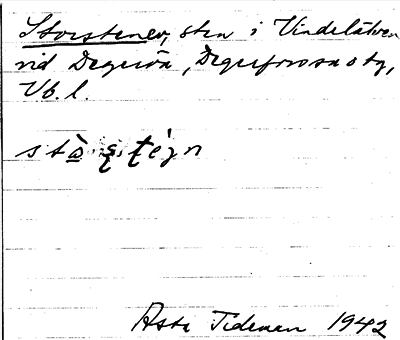 Storstenen, sten i Vindelälven
vid Degerön, Degerfors sn o tg,
Vb. l.
Asta Tideman 1942